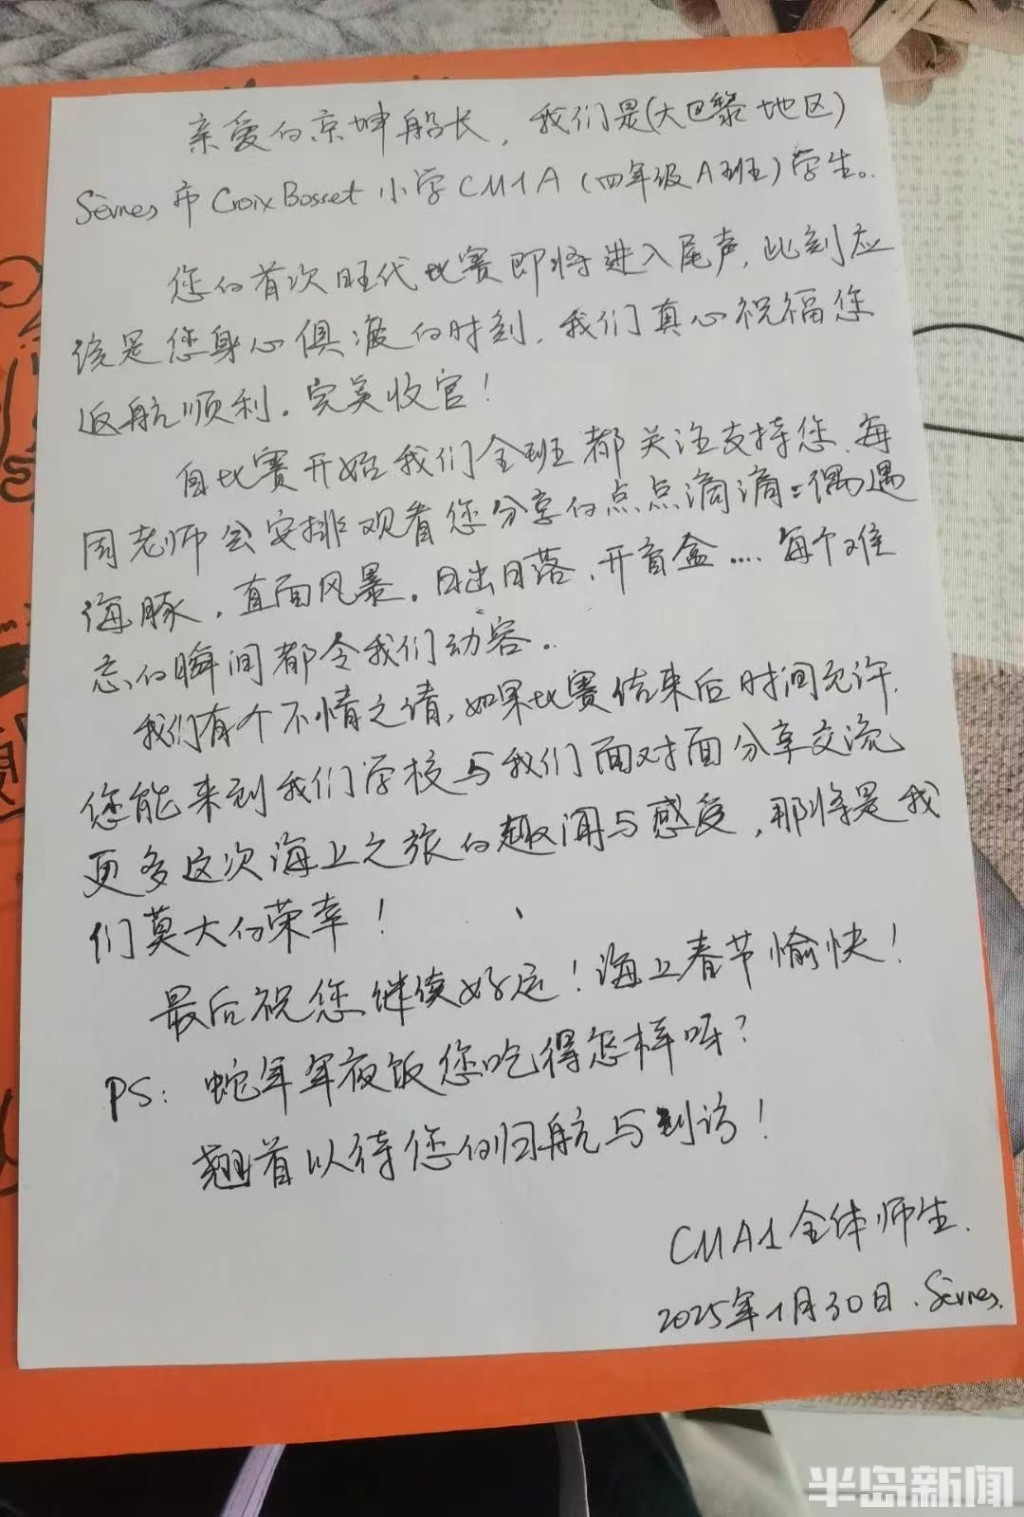 亲爱的京坤船长，我们是(大巴黎地区)
Sèvres市Croix Bosset小学CM1A（四年级A班）学生。
您的首次旺代比赛即将进入尾声，此刻应
该是您身心俱疲的时刻，我们真心祝福您
返航顺利。完美收官！
自比赛开始我们全班都关注支持您，每
周老师会安排观看您分享的点点滴滴：偶遇
海豚，直面风暴。日出日落、开盲盒....每个难
忘的瞬间都令我们动容。
我们有个不情之请，如果比赛结束后时间允许，
您能来到我们学校与我们面对面分享交流
更多这次海上之旅的趣闻与感受，那将是我
们莫大的荣幸！
最后祝您继续好运！海上春节愉快！
PS：蛇年年夜饭您吃得怎样呀？
翘首以待您的归航与到访！
CMA1全体师生.
2025年1月30日.Sèvres.
半岛新闻